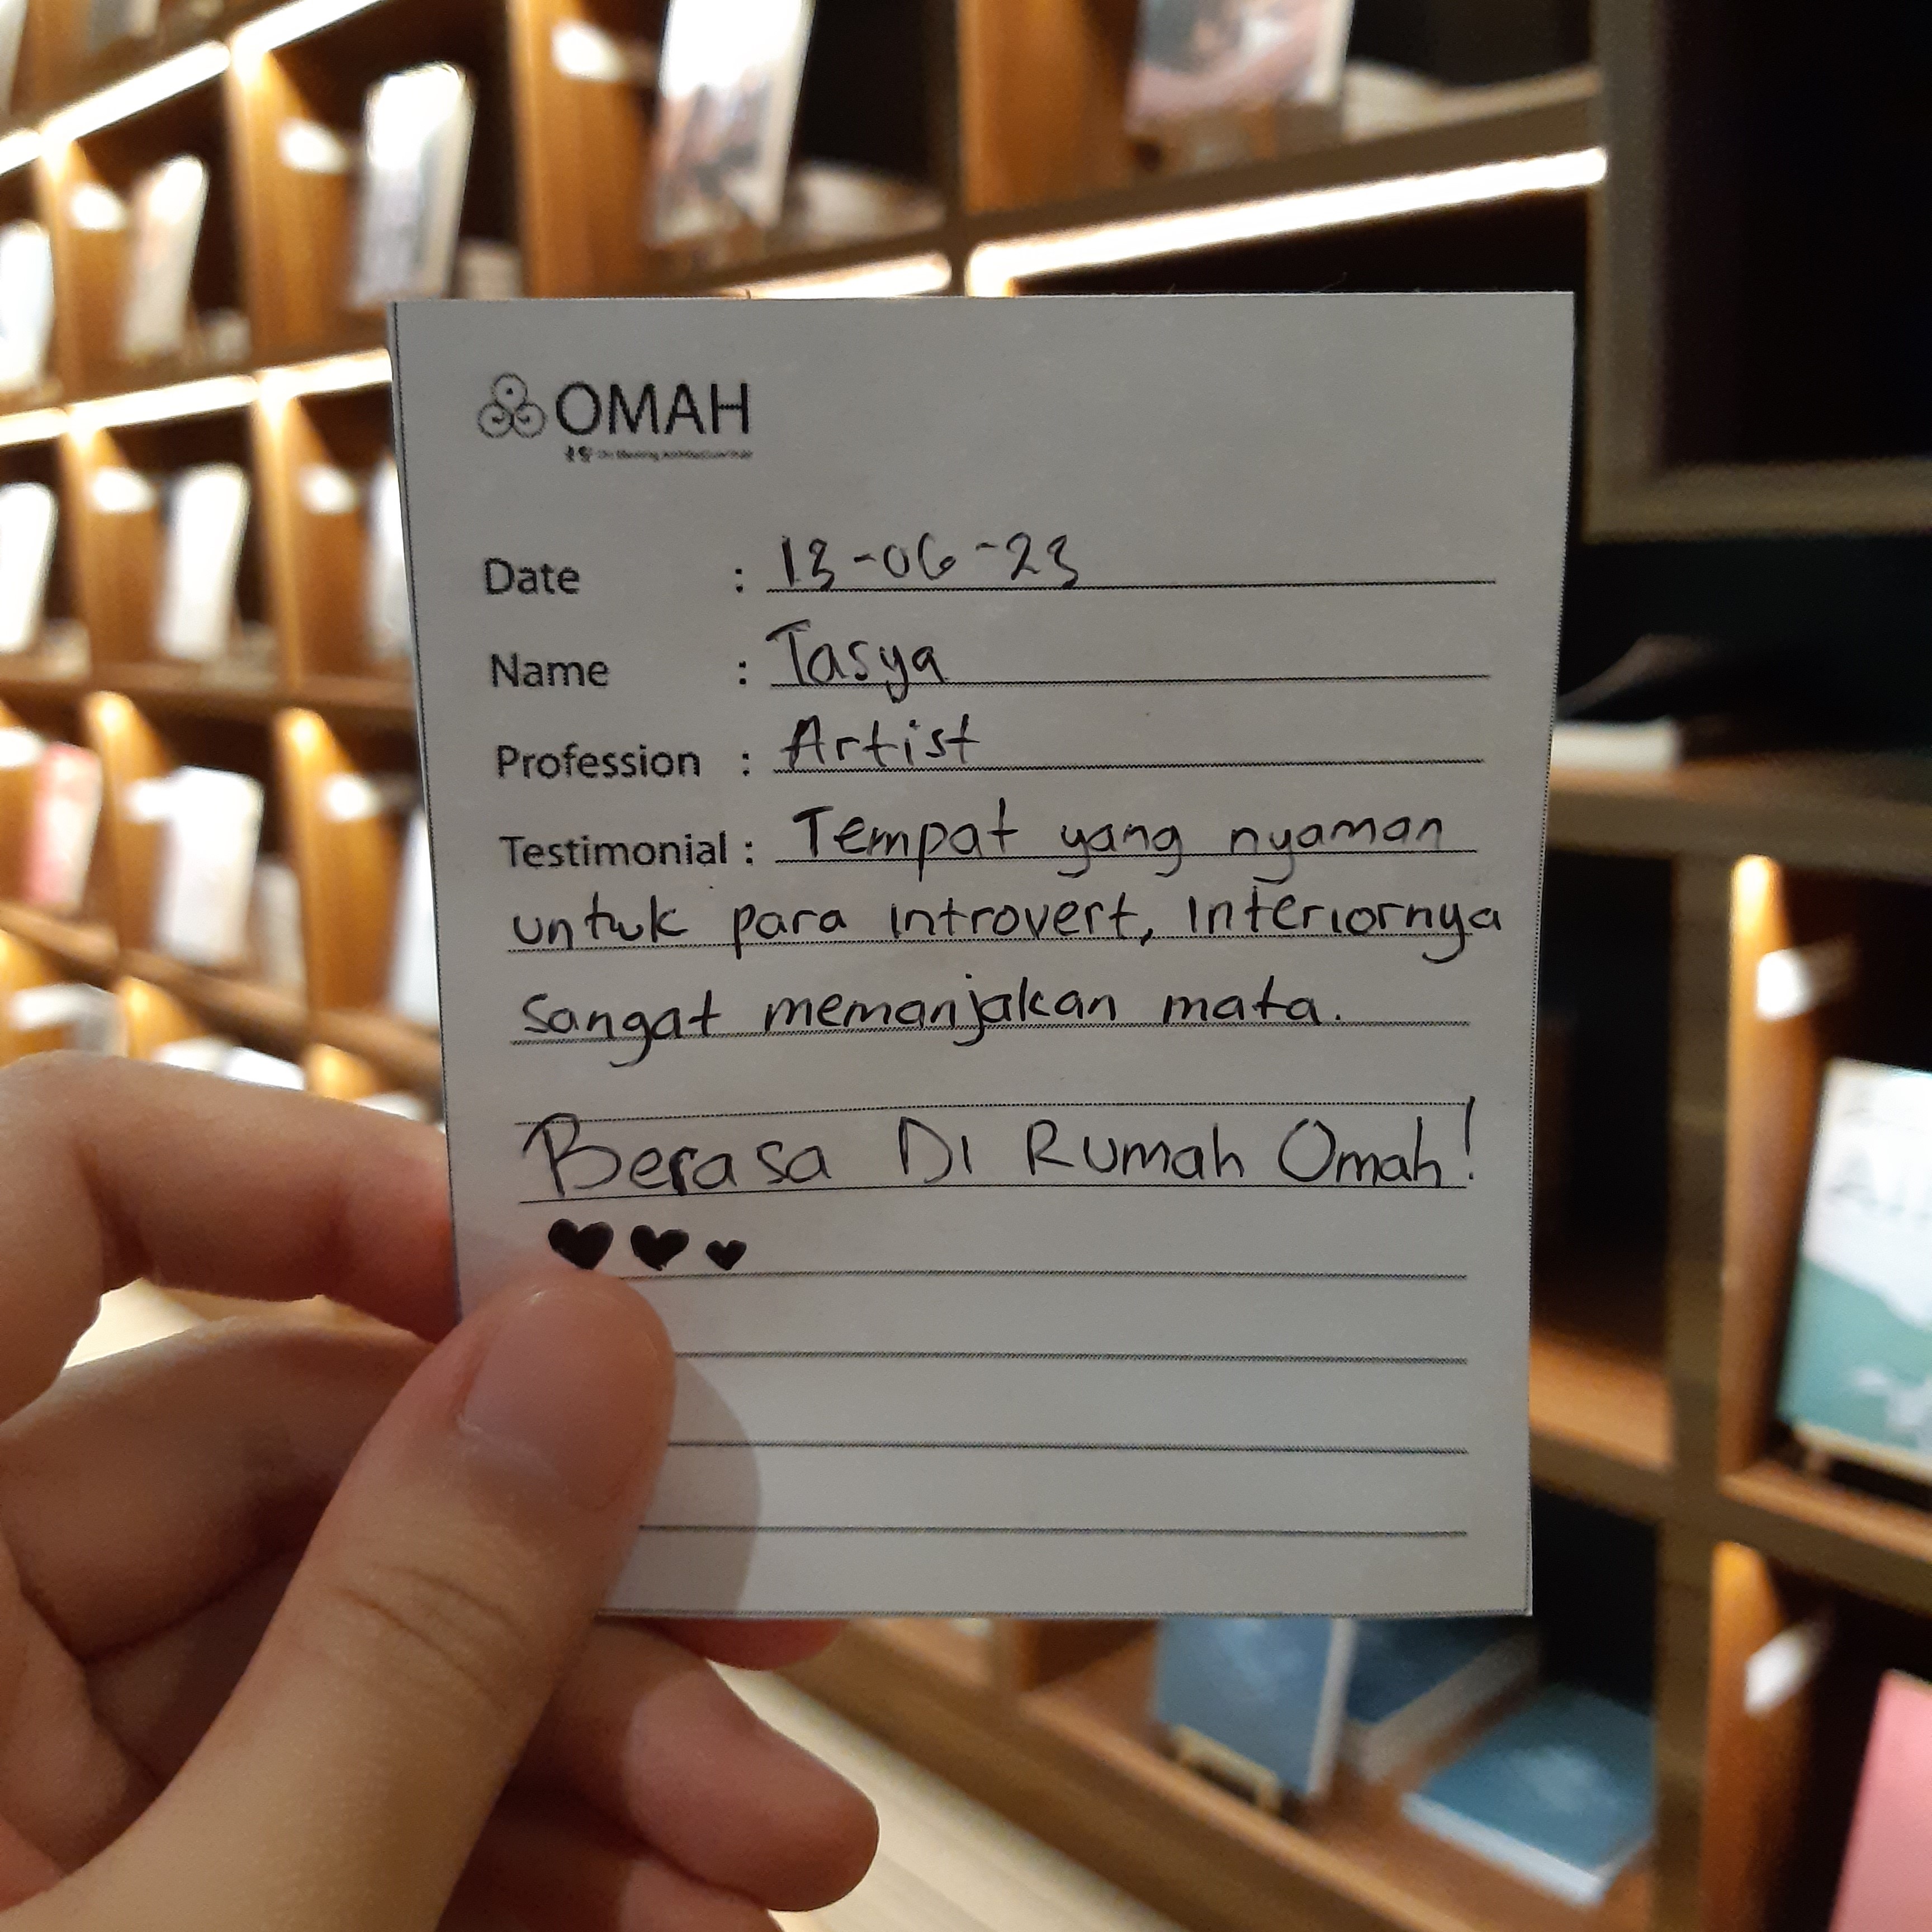 OMAH
Date : 13-06-23
Name : Tasya
Profession : Artist
Testimonial : Tempat yang nyaman
untuk para introvert, interiornya
sangat memanjakan mata.
Berasa Di Rumah Omah!